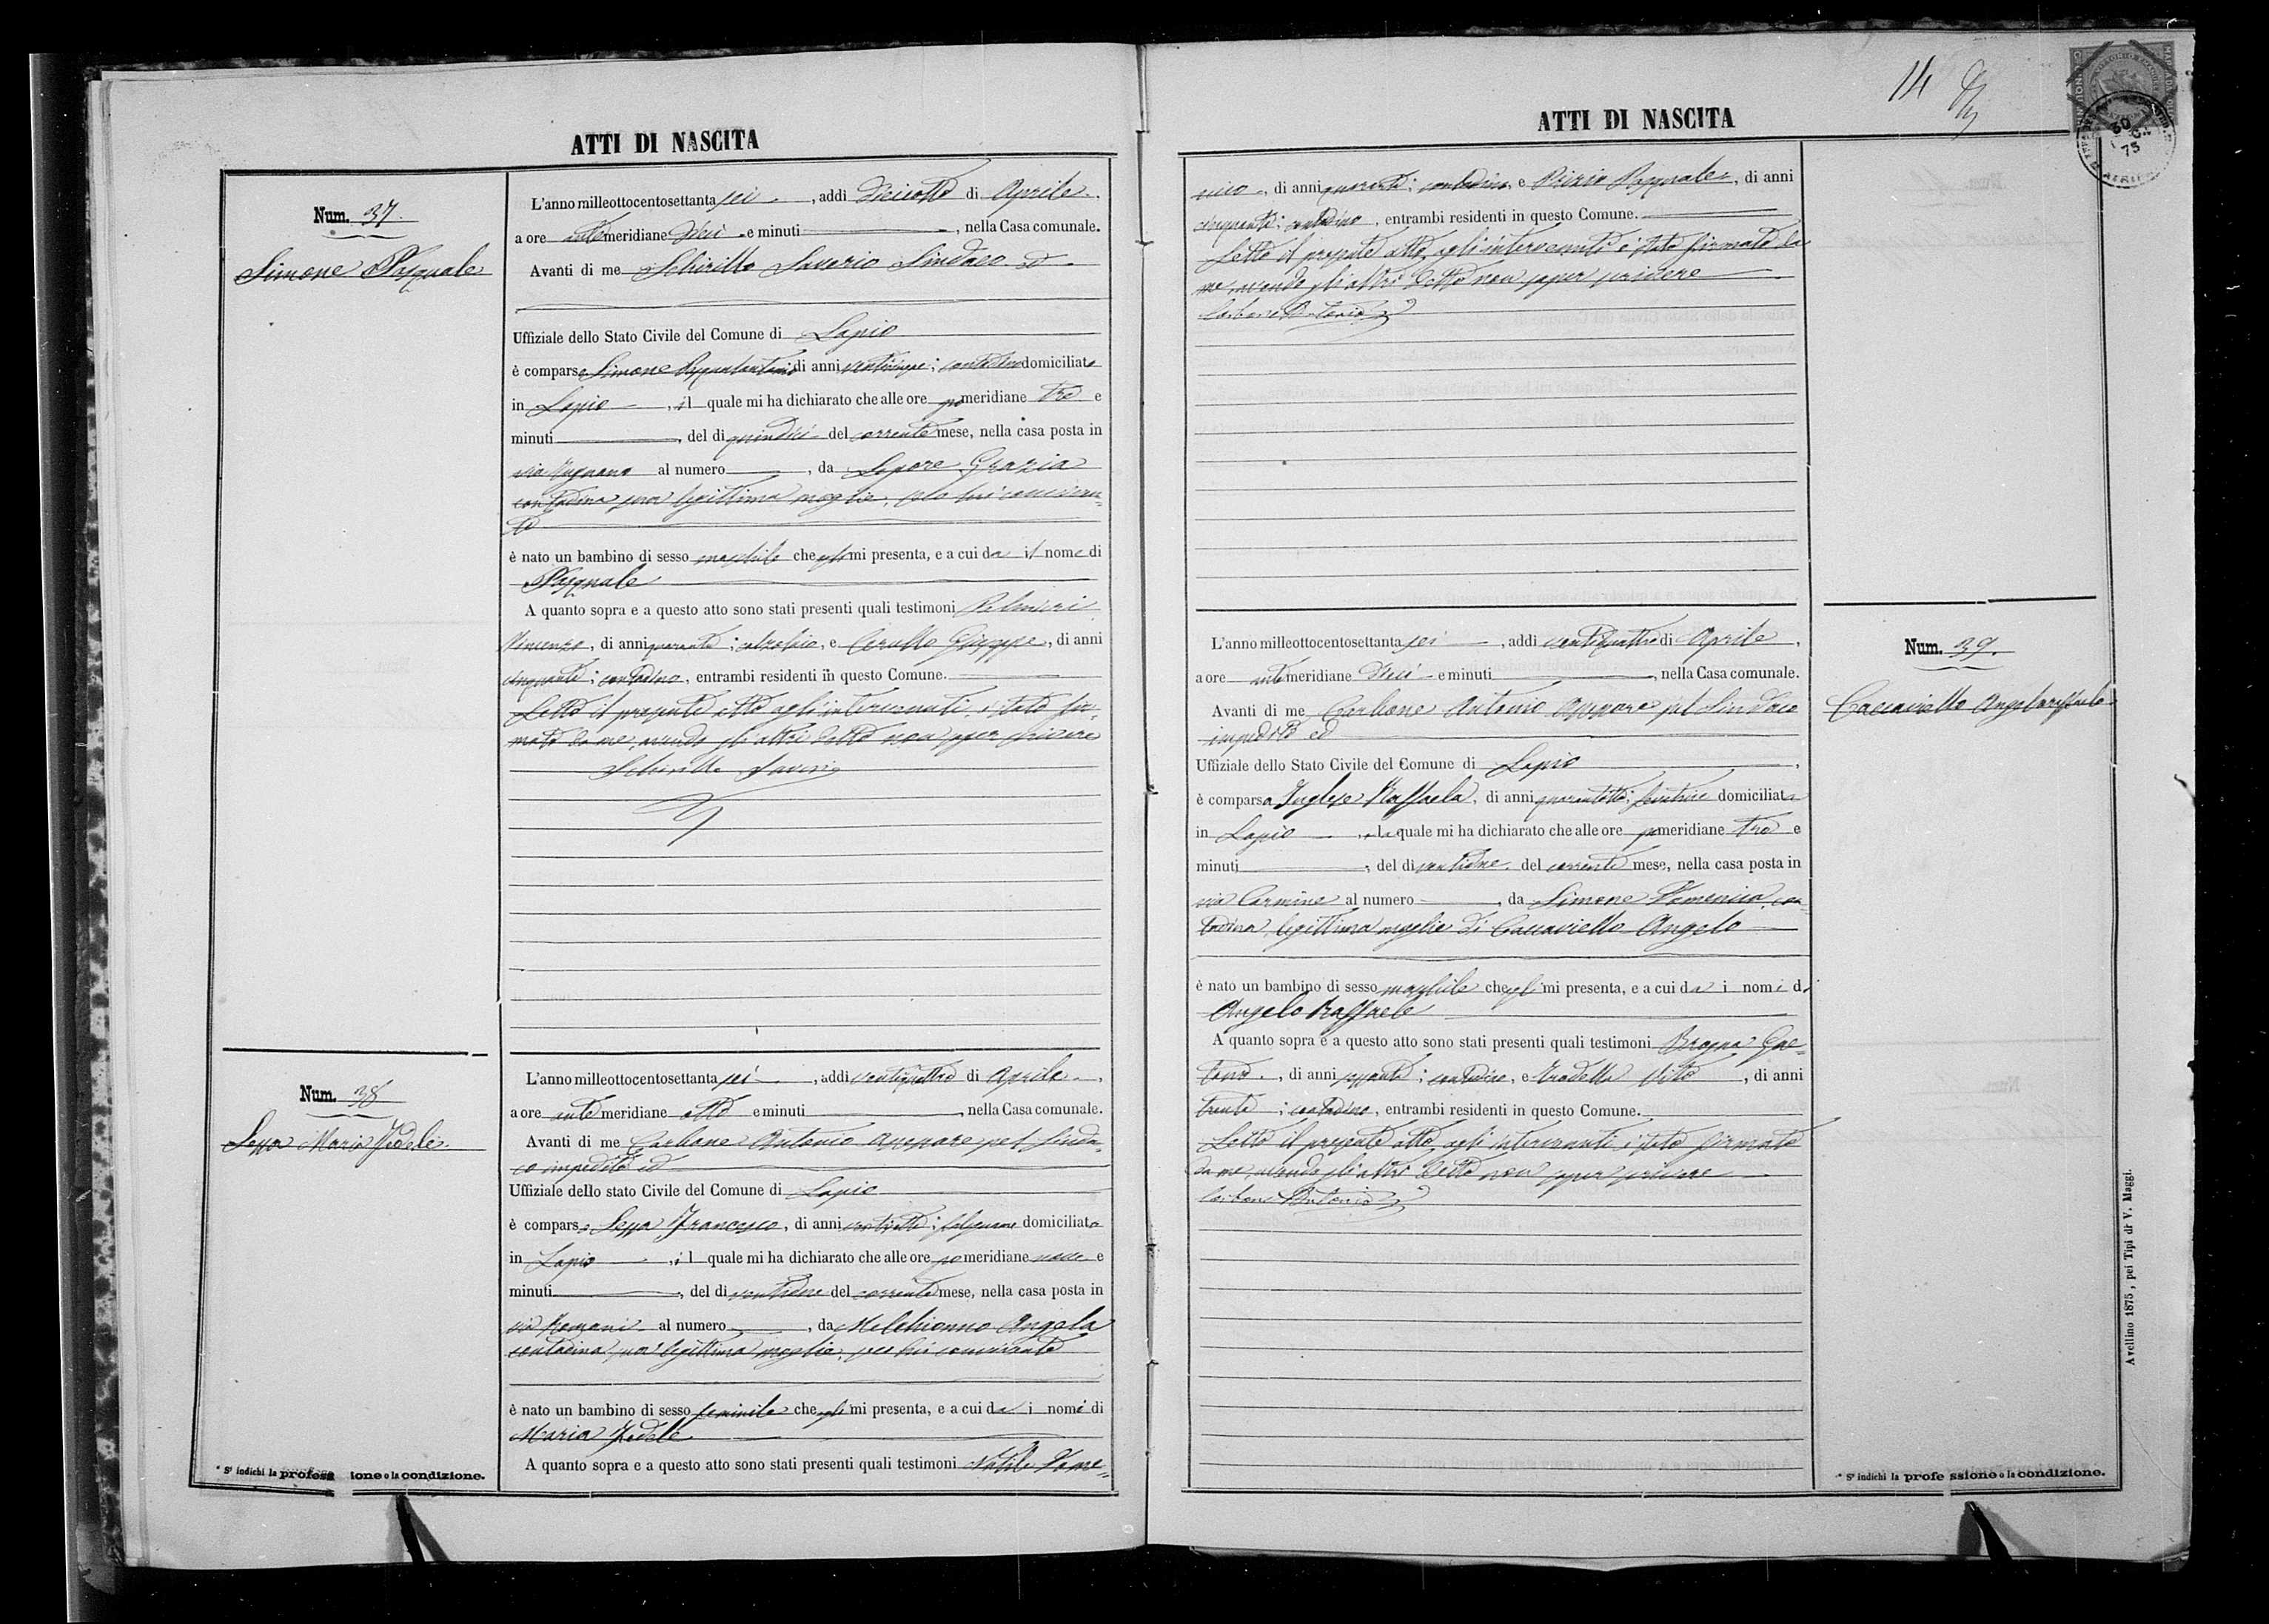 ATTI DI NASCITA
Num. 37.
Simone Pasquale
L'anno milleottocentosettanta sei, addì diciotto di Aprile
a ore antemeridiane dieci e minuti, nella Casa comunale.
Avanti di me Schirillo Saverio Sindaco ed
Uffiziale dello Stato Civile del Comune di Lapio
è comparso Simone di anni venticinque; contadino domiciliato
in Lapio, il quale mi ha dichiarato che alle ore pomeridiane tre e
minuti, del dì quindici del corrente mese, nella casa posta in
via al numero, da Lepore Grazia
contadina sua legittima moglie, seco lui conviven-
te
è nato un bambino di sesso maschile che egli mi presenta, e a cui da il nome di
Pasquale
A quanto sopra e a questo atto sono stati presenti quali testimoni
Vincenzo, di anni quaranta; calzolaio, e Cerullo Giuseppe, di anni
cinquanta; contadino, entrambi residenti in questo Comune.
Letto il presente atto agli intervenuti, è stato fir-
mato da me, avendo gli altri detto non saper scrivere
Schirillo Saverio
Num. 38
Lessa Maria Fedele
L'anno milleottocentosettanta sei, addì ventiquattro di Aprile,
a ore antemeridiane otto e minuti, nella Casa comunale.
Avanti di me Carbone Antonio Assessore pel Sinda-
co impedito ed
Uffiziale dello stato Civile del Comune di Lapio
è comparso Lessa Francesco, di anni ventisette; falegname domiciliato
in Lapio, il quale mi ha dichiarato che alle ore pomeridiane nove e
minuti, del dì ventidue del corrente mese, nella casa posta in
via Romani al numero, da Melchionno Angela
contadina sua legittima moglie, seco lui convivente
è nato un bambino di sesso feminile che egli mi presenta, e a cui da i nomi di
Maria Fedele
A quanto sopra e a questo atto sono stati presenti quali testimoni Natile Dome-
* S' indichi la professione o la condizione.
14
ATTI DI NASCITA
30
75
nico, di anni quaranta; contadino, e Prizio Pasquale, di anni
cinquanta; contadino, entrambi residenti in questo Comune.
Letto il presente atto agli intervenuti è stato firmato da
me, avendo gli altri detto non saper scrivere
Carbone Antonio
L'anno milleottocentosettanta sei, addì ventiquattro di Aprile,
a ore antemeridiane dieci e minuti, nella Casa comunale.
Avanti di me Carbone Antonio Assessore pel Sindaco
impedito ed
Uffiziale dello Stato Civile del Comune di Lapio,
è comparsa Inglese Raffaela, di anni quarantotto; levatrice domiciliata
in Lapio, la quale mi ha dichiarato che alle ore pomeridiane tre e
minuti, del dì ventidue del corrente mese, nella casa posta in
via Carmine al numero, da Simone Domenica con-
tadina, legittima moglie di Caccaviello Angelo
è nato un bambino di sesso maschile che egli mi presenta, e a cui da i nomi di
Angelo Raffaele
A quanto sopra e a questo atto sono stati presenti quali testimoni Brogna Gae-
tano, di anni sessanta; contadino, e Vito, di anni
trenta; contadino, entrambi residenti in questo Comune.
Letto il presente atto agli intervenuti è stato firmato
da me, avendo gli altri detto non saper scrivere
Carbone Antonio
Num. 39.
Caccaviello Angeloraffaele
Avellino 1875, pei Tipi di V. Maggi.
* S' indichi la professione o la condizione.